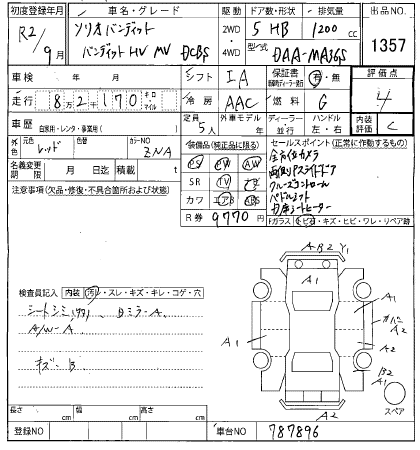 初度登録年月 車名・グレード 駆動 ドア数・形状 排気量 出品NO
R2/9月 ソリオバンディット 2WD 5 HB 1200cc
バンディット HV MV DCBS 4WD 型式 DAA-MA36S 1357
車検 年 月 シフト IA 保証書 有・無 評価点
走行 82170 キロ マイル 冷房 AAC 燃料 G 4
車歴 自家用・レンタ・事業用( ) 定員 5人 外車モデル 年 ディーラー 並行 ハンドル 左・右 内装評価 C
外色 元色 レッド 色替 カラーNO ZNA
装備品(純正品に限る) セールスポイント(正常に作動するもの)
名義変更期限 月 日迄 積載 t
PS PW AW
SR TV ナビ
カワ エアB ABS
全方位カメラ
両側パワースライドドア
クルーズコントロール
パドルシフト
R券 9770円
注意事項(欠品・修復・不具合箇所および状態)
Fガラス トビ石・キズ・ヒビ・ワレ・リペア跡
AB2 Y1
A1
検査員記入 内装 汚レ・スレ・キズ・キレ・コゲ・穴
シートシミ(切)、Bミラー A
A/W-A
キズ B
A1 A1 A2
A1
B2
A1
スペア
A2
長さ cm 幅 cm 高さ cm
登録NO 車台NO 787896